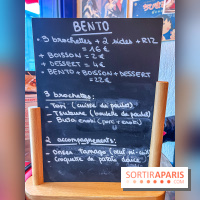 BENTO
- 3 brochettes + 2 sides + RIZ
= 16€
+ BOISSON = 2€
+ DESSERT = 4€
- BENTO + BOISSON + DESSERT
= 22€
3 brochettes :
- Tori (cuisse de poulet)
- Tsukune (boulette de poulet)
- Buta enoki (porc + enoki)
2 accompagnements :
- Onsen Tamago (oeuf mi-cuit)
- Croquette de patate douce
SORTIRAPARIS